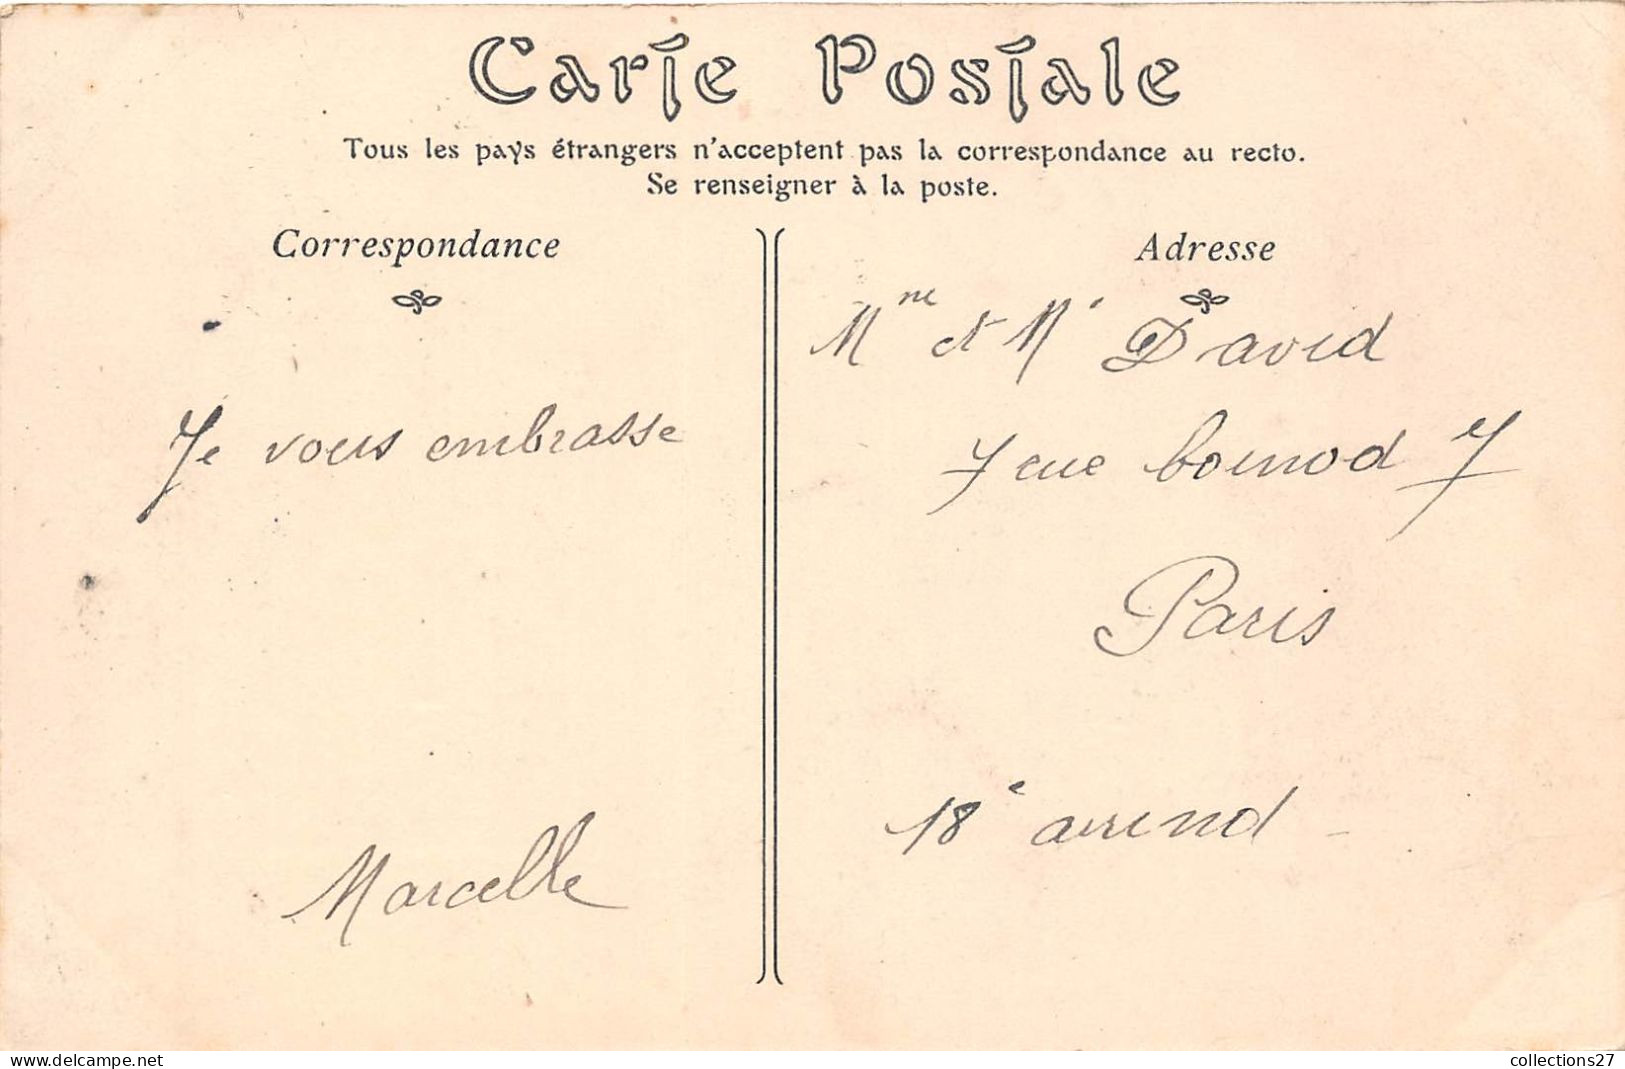 Carte Postale
Tous les pays étrangers n'acceptent pas la correspondance au recto.
Se renseigner à la poste.
Correspondance
Je vous embrasse
Marcelle
Adresse
Mme et Mr David
7 rue boinod 7
Paris
18e arrond
www.delcampe.net
collections27